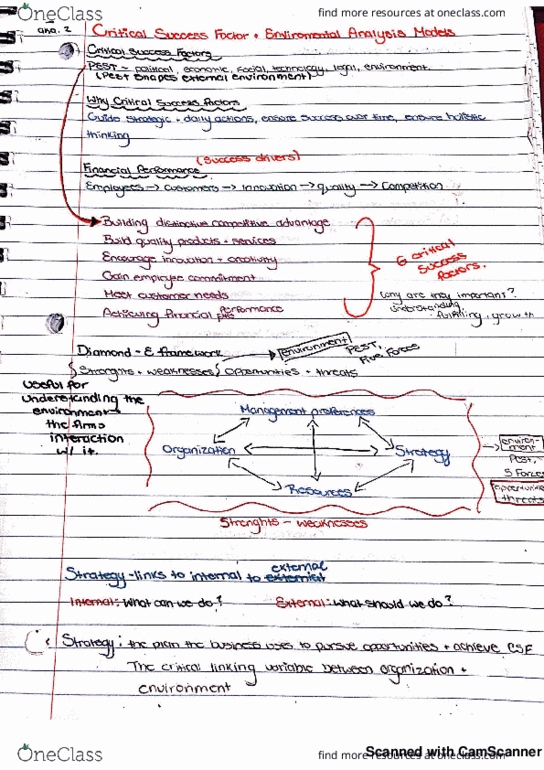 OneClass
find more resources at oneclass.com
Critical Success Factor + Enviromental Analysis Models
Critical Success Factors
PEST - political, economic, social, technology, legal, environment
(Pest shapes external environment)
Why Critical Success Factors
Guide strategic + daily actions, ensure success over time, ensure holistic
thinking
(Success drivers)
Financial Performance
Employees → customers → Innovation → quality → Competition
Building distinctive competitive advantage
Build quality products + services
Encourage innovation + creativity
Gain employee commitment
Meet customer needs
Achieving Financial Performance
6 critical
success
factors.
Why are they important?
understanding
fulfilling, growth
Diamond-E framework
environment
PEST,
Five Forces
Strengths + weaknesses opportunities + threats
Useful for
understanding the
environment
the firms
interaction
w/ it.
Management preferences
Organization
Strategy
Resources
environ-
ment
PEST,
5 Forces
threats
Strenghts - weaknesses
Strategy - links to internal to external
Internal: What can we do?
External: What should we do?
Strategy: the plan the business uses to pursue opportunities + achieve CSF
The critical linking variable between organization +
environment
OneClass
find more resources at oneclass.com
Scanned with CamScanner